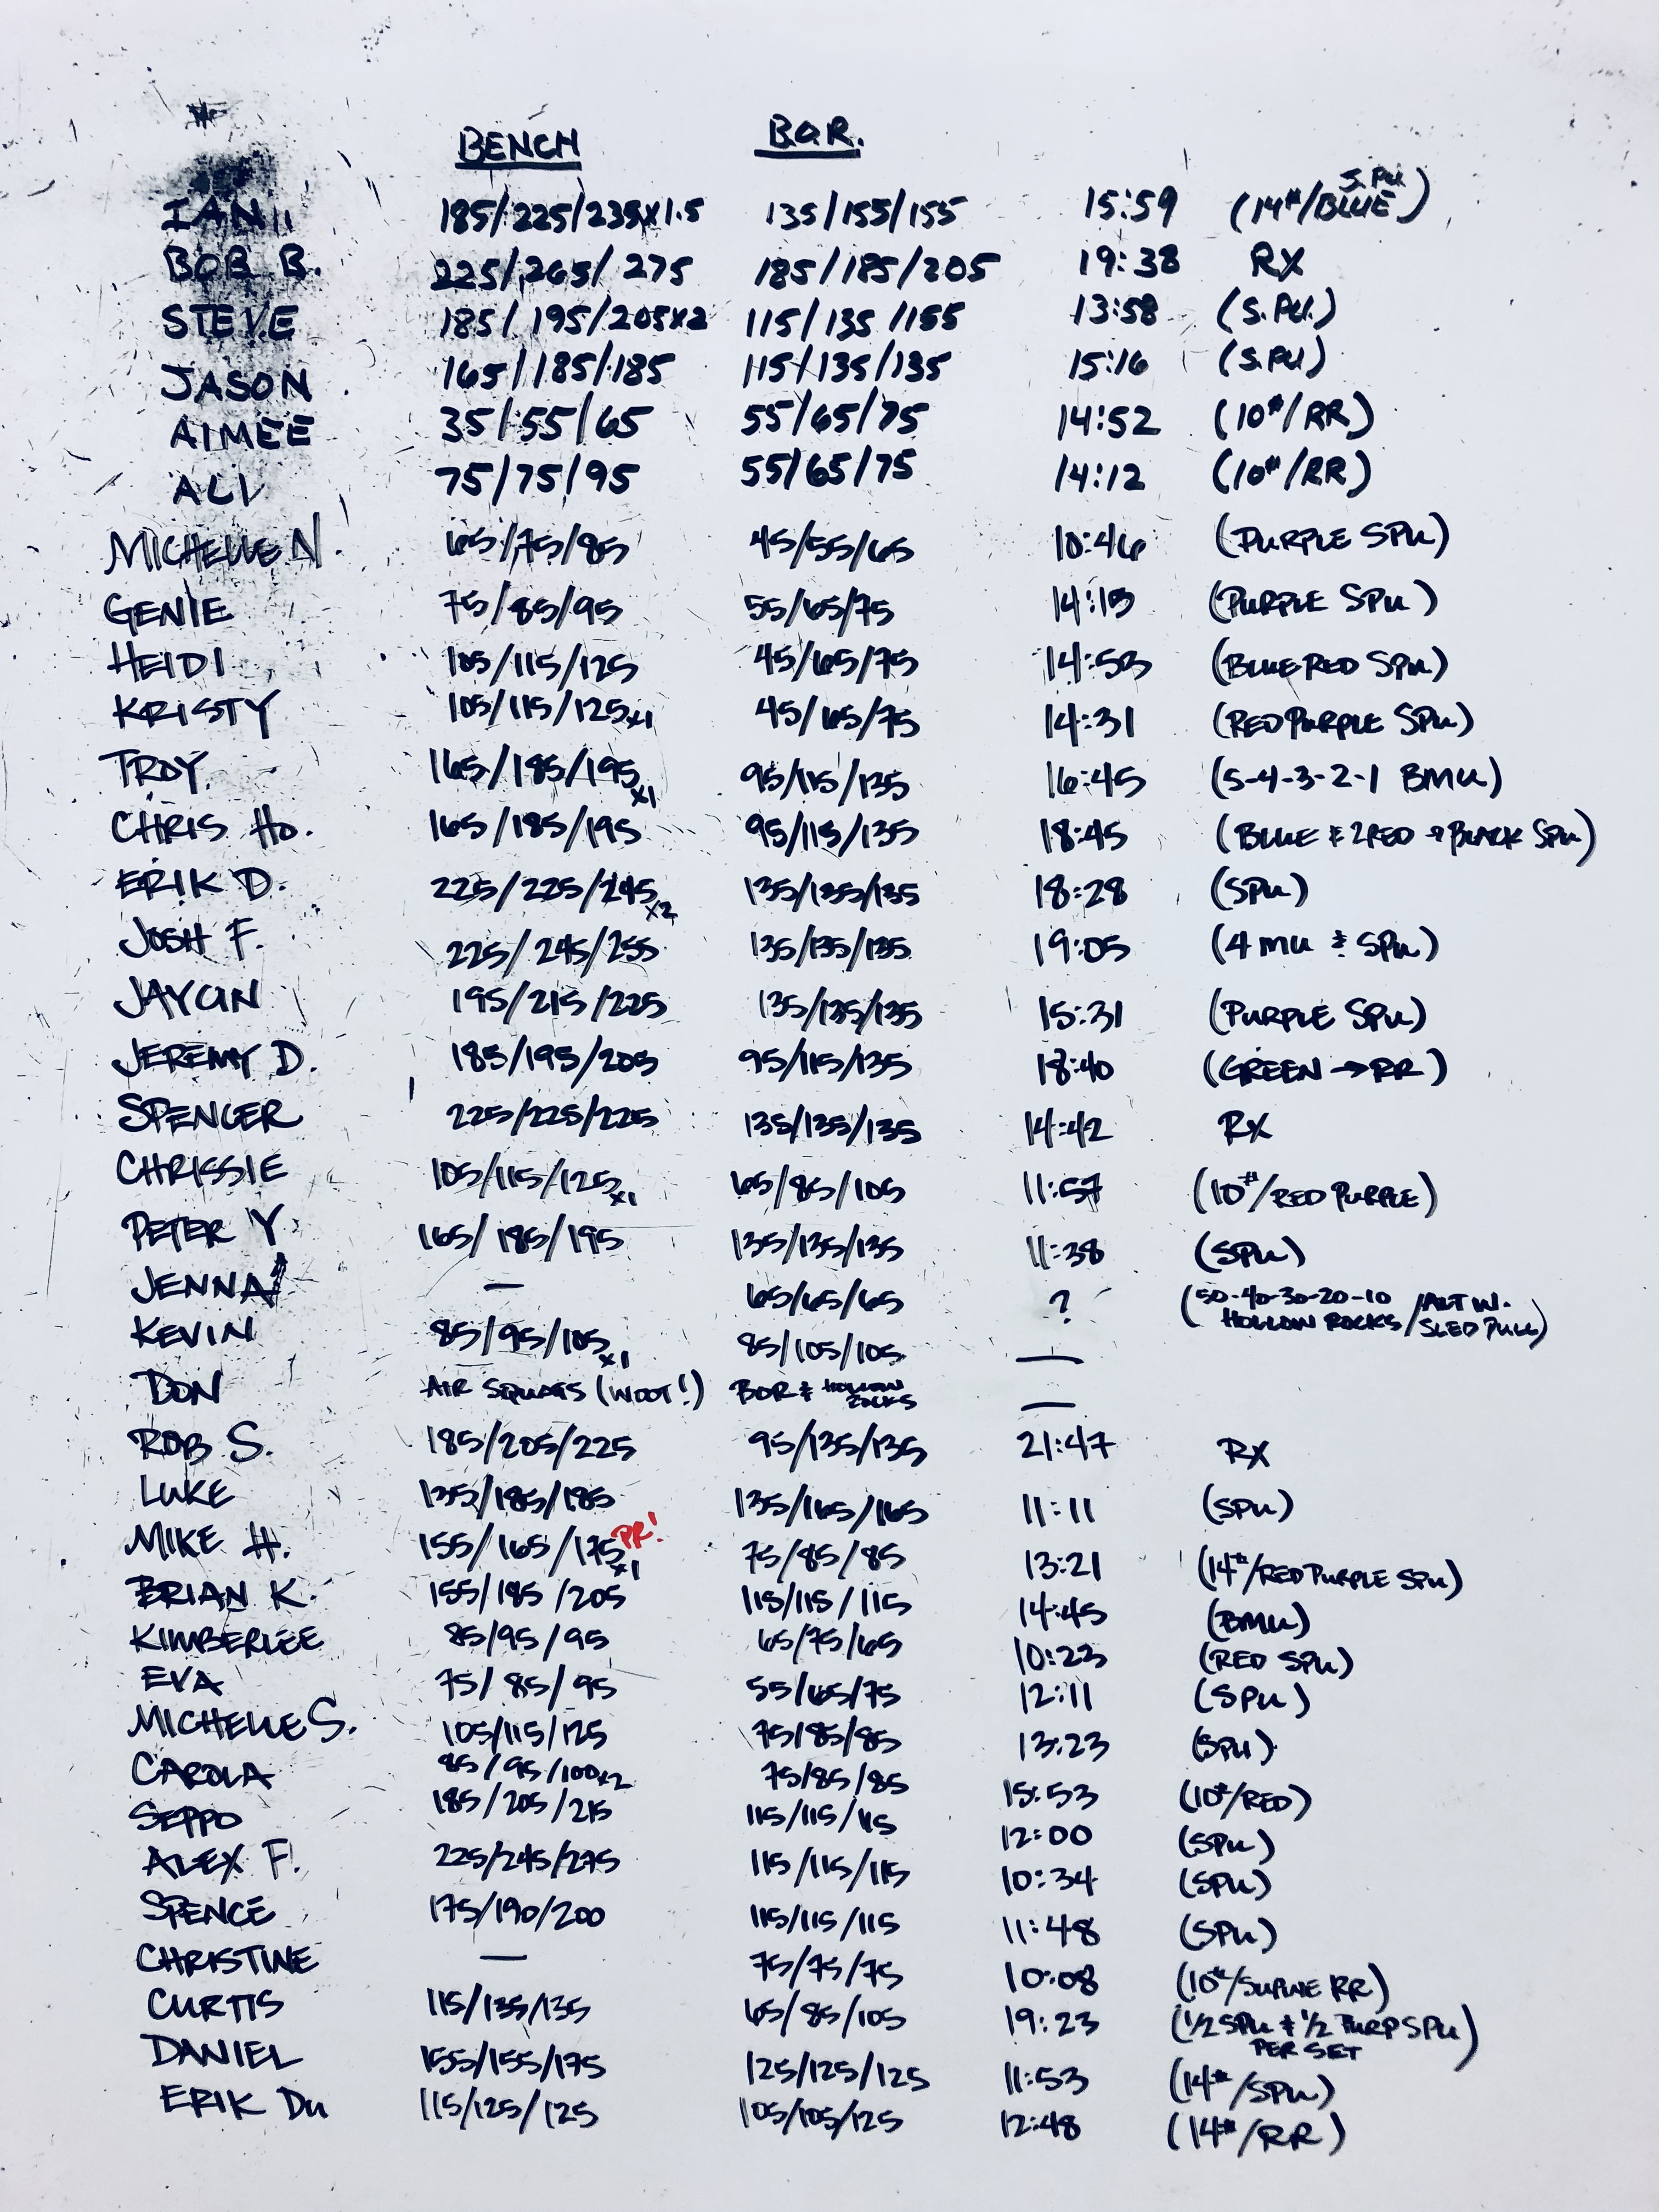 BENCH B.O.R.
IAN 185/225/235x1.5 135/155/155 15:59 (14#/BLUE S.PU)
BOB B. 225/265/275 185/185/205 19:38 RX
STEVE 185/195/205x2 115/135/155 13:58 (S.PU.)
JASON 165/185/185 115/135/135 15:16 (S.PU)
AIMEE 35/55/65 55/65/75 14:52 (10#/RR)
ALI 75/75/95 55/65/75 14:12 (10#/RR)
MICHELLE N. 65/75/85 45/55/65 10:46 (PURPLE SPU)
GENIE 75/85/95 55/65/75 (PURPLE SPU)
HEIDI 105/115/125 45/65/75 14:53 (BLUE RED SPU)
KRISTY 105/115/125x1 45/65/75 14:31 (RED PURPLE SPU)
TROY 165/185/195x1 95/115/135 16:45 (5-4-3-2-1 BMU)
CHRIS HO. 165/185/195 95/115/135 18:45 (BLUE & 2RED → BLACK SPU)
ERIK D. 225/225/245x2 135/135/135 18:28 (SPU)
JOSH F. 225/245/255 135/135/135 19:05 (4 MU & SPU)
JAYCIN 195/215/225 135/135/135 15:31 (PURPLE SPU)
JEREMY D. 185/195/205 95/115/135 18:40 (GREEN → RR)
SPENCER 225/225/225 135/135/135 14:42 RX
CHRISSIE 105/115/125x1 65/85/105 11:57 (10#/RED PURPLE)
PETER Y. 165/185/195 135/135/135 11:38 (SPU)
JENNA — 65/65/65 ? (50-40-30-20-10 HOLLOW ROCKS/ALT W. SLED PULL)
KEVIN 85/95/105x1 85/105/105 —
DON AIR SQUATS (WOOT!) BOR & HOLLOW ROCKS —
ROB S. 185/205/225 95/135/135 21:47 RX
LUKE 135/185/185 135/165/165 11:11 (SPU)
MIKE H. 155/165/175x1 PR! 75/85/85 13:21 (14#/RED PURPLE SPU)
BRIAN K. 155/185/205 115/115/115 14:45 (BMU)
KIMBERLEE 85/95/95 65/75/65 10:23 (RED SPU)
EVA 75/85/95 55/65/75 12:11 (SPU)
MICHELLE S. 105/115/125 75/85/85 13:23 (SPU)
CAROLA 85/95/100x2 75/85/85 15:53 (10#/RED)
SEPPO 185/205/215 115/115/115 12:00 (SPU)
ALEX F. 225/245/275 115/115/115 10:34 (SPU)
SPENCE 175/190/200 115/115/115 11:48 (SPU)
CHRISTINE — 75/75/75 10:08 (10#/SUPINE RR)
CURTIS 115/135/135 65/85/105 19:23 (1/2 SPU & 1/2 PURP SPU PER SET)
DANIEL 155/155/175 125/125/125 11:53 (14#/SPU)
ERIK DU 115/125/125 105/105/125 12:48 (14#/RR)